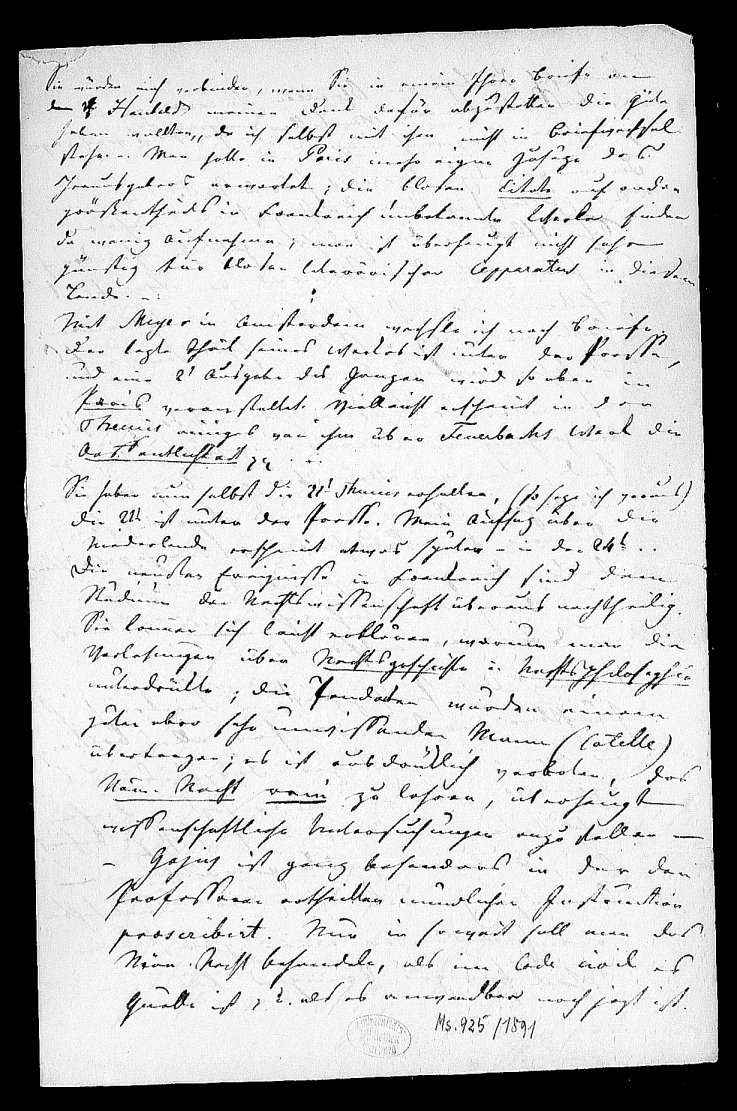 Sie würden mich verbinden, wenn Sie in einem Ihrer Briefe an
den H. Haubold meinen Dank dafür abzustatten die Güte
haben wollten, da ich selbst mit ihm nicht in Briefwechsel
stehe. – Man hatte in Paris mehr eigene Zusätze des
Herausgebers erwartet; die bloßen Citate auf andere
größtentheils in Frankreich unbekannte Werke, finden
da wenig Aufnahme; man ist überhaupt nicht sehr
günstig für bloßen literärischen Apparatus in diesem
Lande. –
Mit Meyer in Amsterdam wechsle ich noch Briefe.
Der lezte Theil seines Werkes ist unter der Presse,
und eine 2t Ausgabe des Ganzen wird so eben in
Paris veranstaltet. Vielleicht erscheint in der
Themis einiges von ihm über Feuerbachs Werk die
Oeffentlichkeit
Sie haben nun selbst die 21t Themis erhalten, (so sage ich voraus)
die 22t ist unter der Presse. Mein Aufsatz über die
Niederlande erscheint etwas später – in der 24t ..
Die neusten Ereignisse in Frankreich sind dem
Studium der Rechtswissenschaft überaus nachtheilig.
Sie können sich leicht erklären, warum man die
Vorlesungen über Rechtsgeschichte u. Rechtsphilosophie
unterdrükte; die Pandekten wurden einem
guten aber sehr unwissenden Manne (Cotelle)
übertragen; es ist ausdrüklich verboten, das
Röm. Recht rein zu lehren, überhaupt
wissenschaftliche Untersuchungen anzustellen —
– Gajus ist ganz besonders in der den
Professoren ertheilten mündlichen Instruction
proscribirt. Nur in soweit soll man das
Röm. Recht behandeln, als im Code civil es
Quelle ist, z. E. als es anwendbar noch jezt ist.
Ms. 925/1891